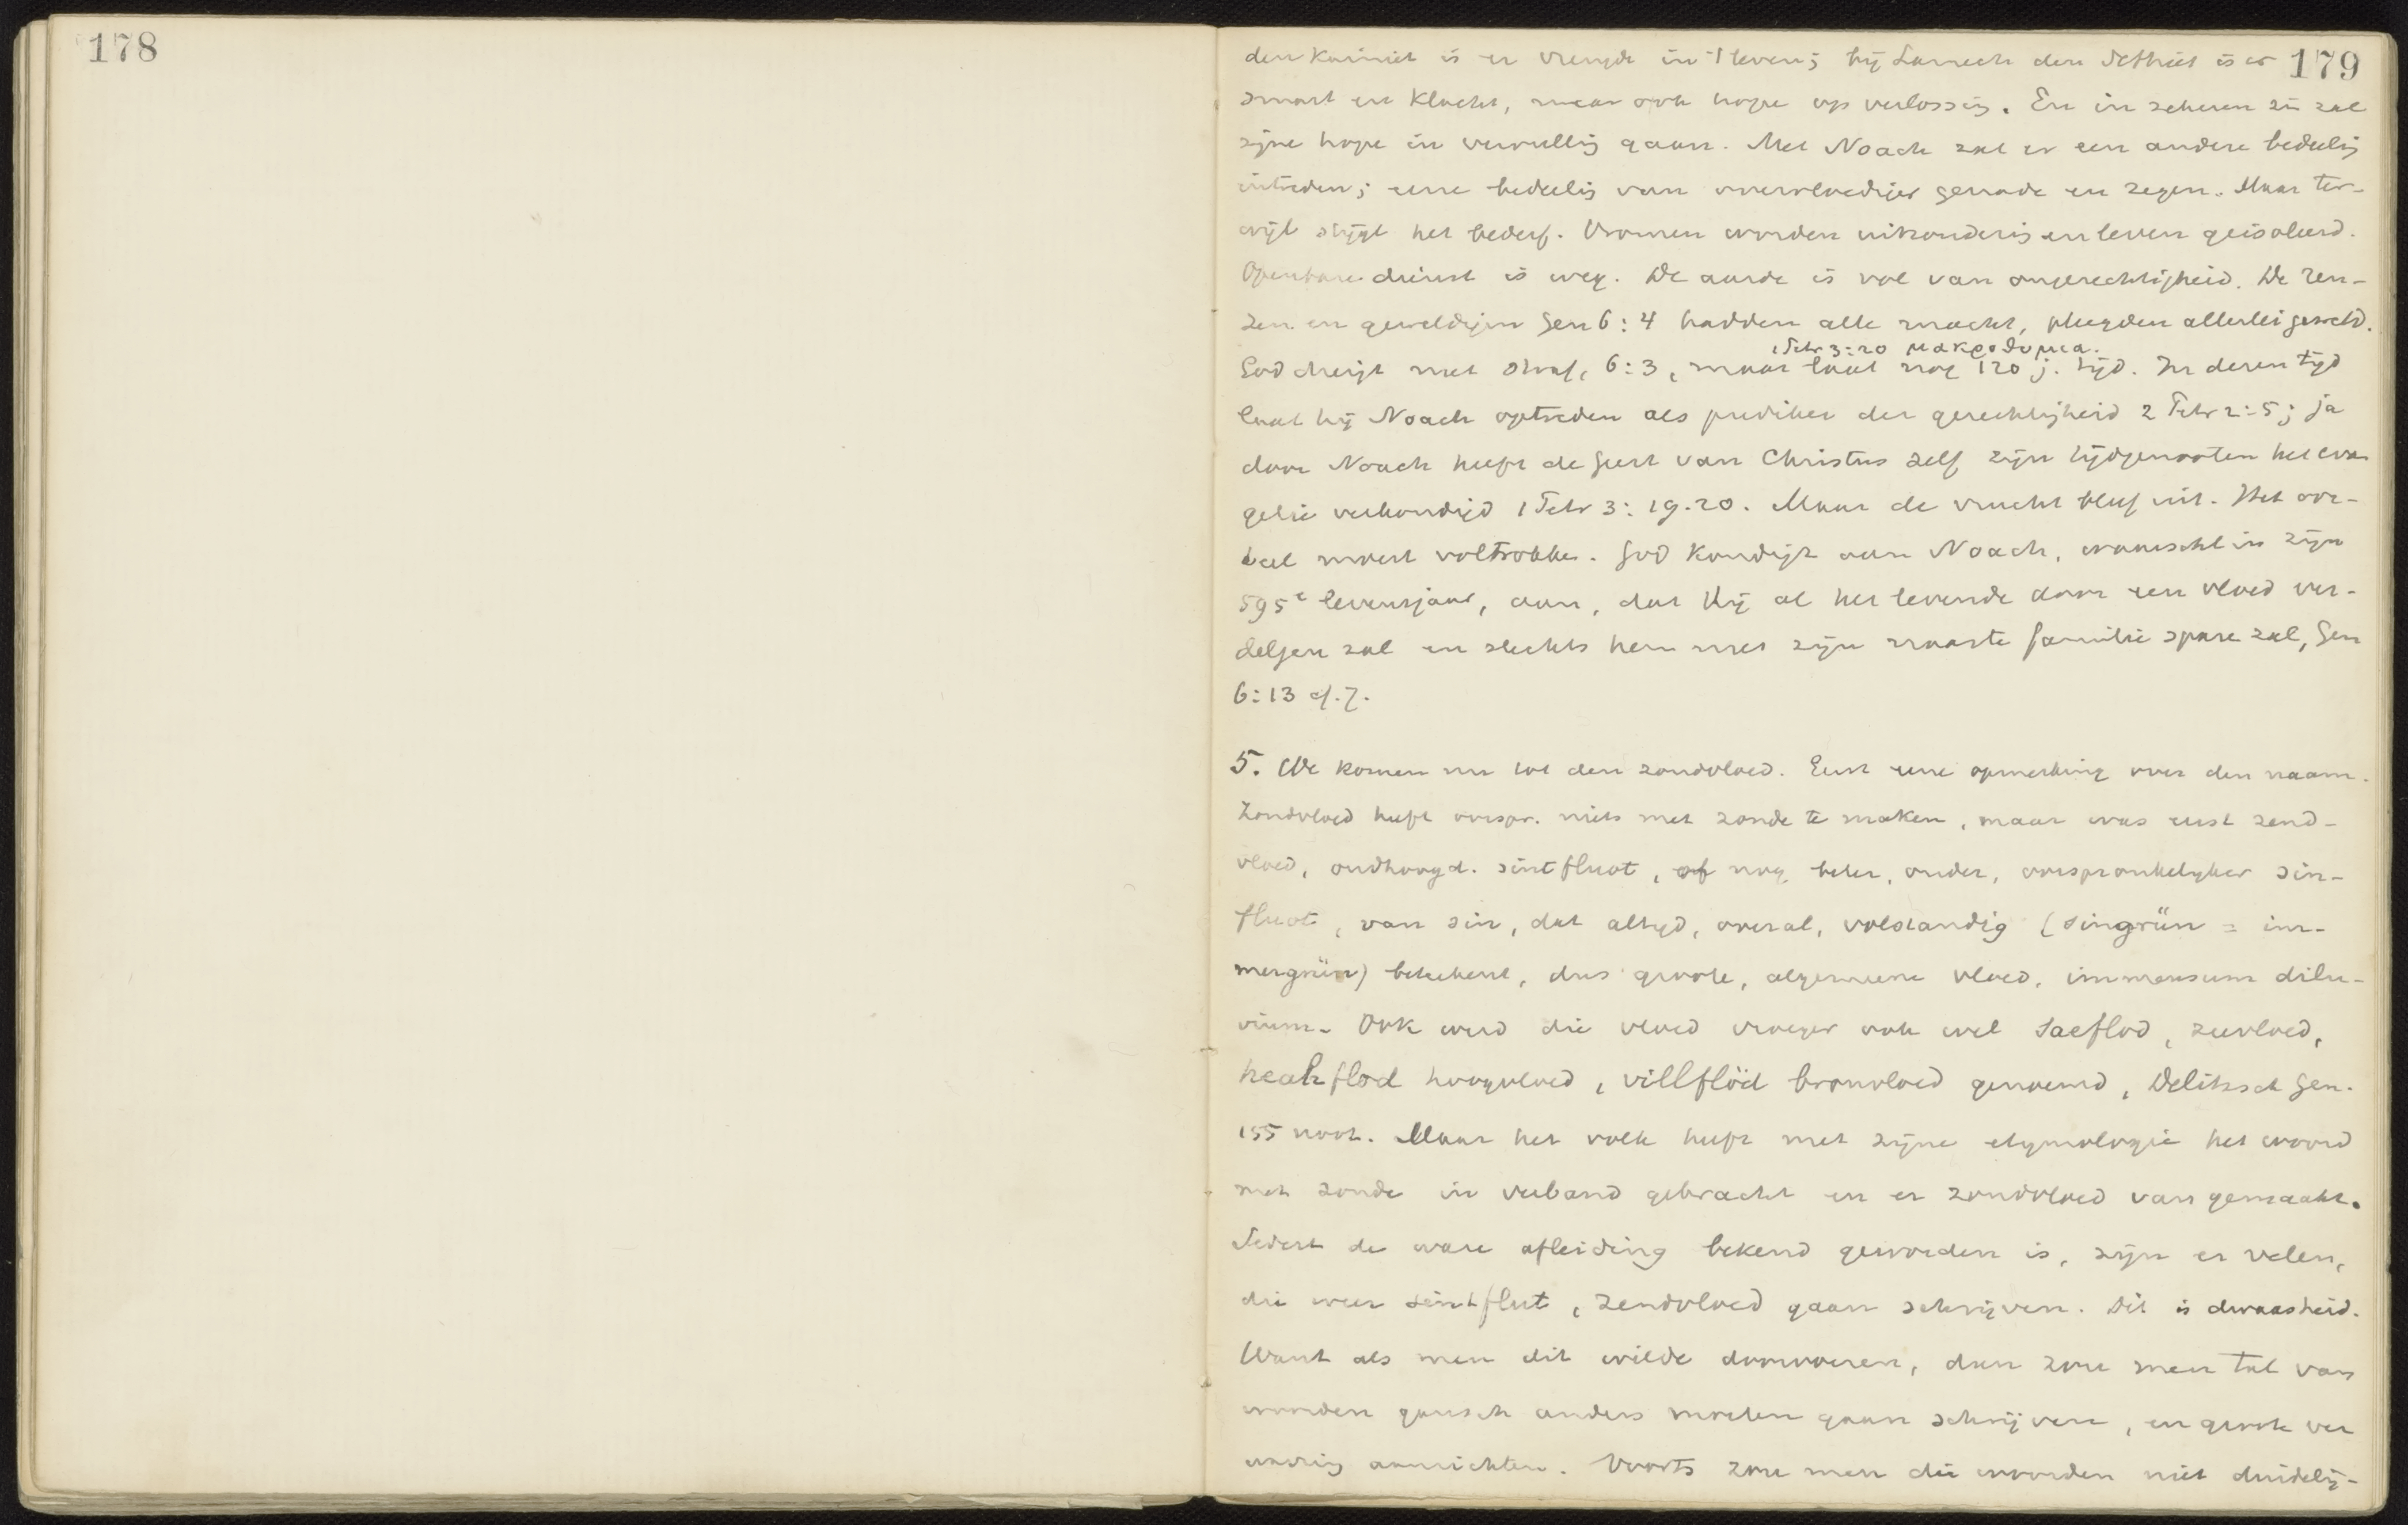 178
179
den Kainiet is er vreugde in 't leven; bij Lamech den Sethiet is er
smart en klacht, maar ook hope op verlossing. En in zekeren zin zal
zijne hope in vervulling gaan. Met Noach zal er een andere bedeeling
intreden; eene bedeeling van overvloediger genade en zegen. Maar ter-
wijl stijgt het bederf. Vromen worden uitzondering en leven geisoleerd.
Openbare dienst is weg. De aarde is vol van ongerechtigheid. De reu-
zen en geweldigen Gen 6:4 hadden alle macht, pleegden allerlei geweld.
1 Petr 3:20 μακροθυμια.
God dreigt met straf, 6:3, maar laat nog 120 j. tijd. In dezen tijd
laat hij Noach optreden als prediker der gerechtigheid 2 Petr 2:5; ja
door Noach heeft de Geest van Christus zelf zijn tijdgenooten het evan
gelie verkondigd 1 Petr 3:19.20. Maar de vrucht bleef uit. Het oor-
deel moest voltrokken. God kondigt aan Noach, waarschl in zijn
595e levensjaar, aan, dat Hij al het levende door een vloed ver-
delgen zal en slechts hem met zijn naaste familie sparen zal, Gen
6:13 cf. 7.
5. We komen nu tot den zondvloed. Eerst eene opmerking over den naam.
Zondvloed heeft oorspr. niets met zonde te maken, maar was eerst zend-
vloed, oudhoogd. sintfluot, of nog beter, ouder, oorspronkelijker sin-
fluot, van sin, dat altijd, overal, volstandig (singrün = im-
mergrün) beteekent, dus groote, algemeene vloed, immensum dilu-
vium. Ook werd die vloed vroeger ook wel saeflod, zeevloed,
heahflod hoogvloed, villflöd bronvloed genoemd, Delitzsch Gen.
155 noot. Maar het volk heeft met zijne etymologie het woord
met zonde in verband gebracht en er zondvloed van gemaakt.
Sedert de ware afleiding bekend geworden is, zijn er velen,
die weer sintflut, zendvloed gaan schrijven. Dit is dwaasheid.
Want als men dit wilde doorvoeren, dan zou men tal van
woorden gansch anders moeten gaan schrijven, en groote ver
warring aanrichten. Voorts zou men die woorden niet duidelij-